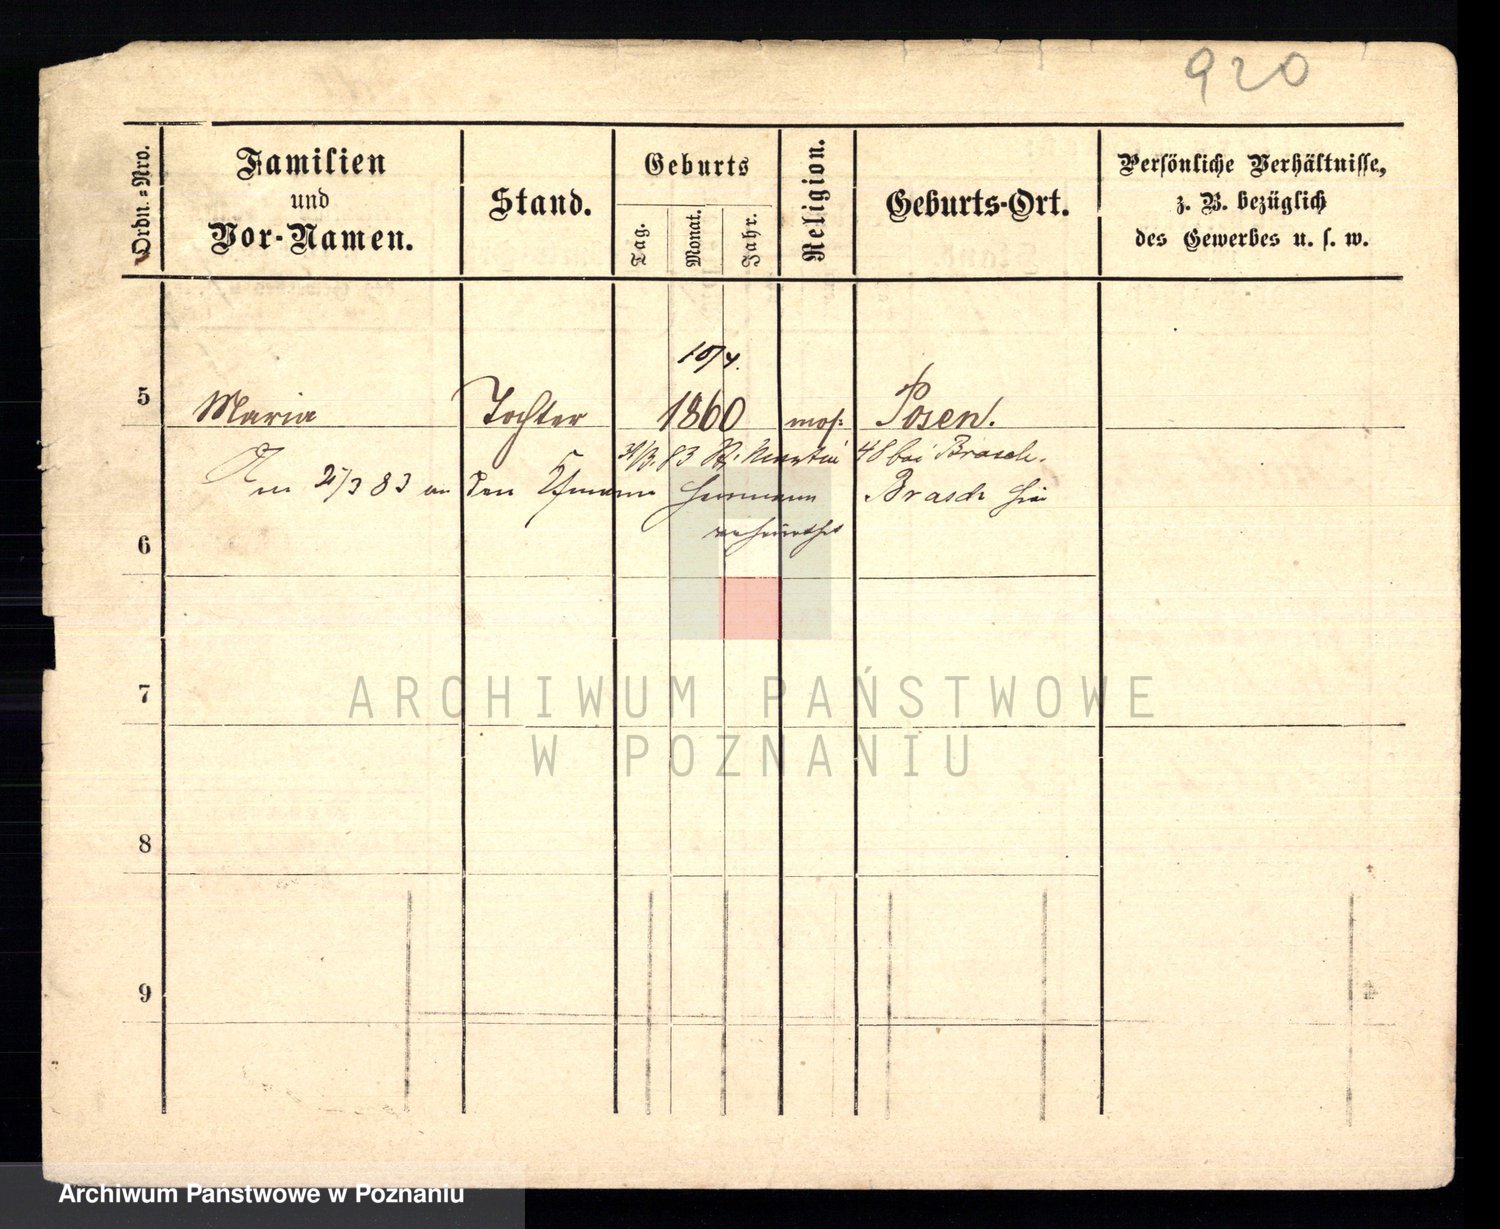 920
Ordn.=Nro.
Familien
und
Vor-Namen.
Stand.
Geburts
Tag.
Monat.
Jahr.
Religion.
Geburts-Ort.
Persönliche Verhältnisse,
z. B. bezüglich
des Gewerbes u. s. w.
10/4.
5 Maria Tochter 1860 mos: Posen.
/3. 83 St. Martin 48 bei Brasch.
Am 2/3 83 an den Kfmann Herrmann Brasch hier
verheirathet
6
7
ARCHIWUM PAŃSTWOWE
W POZNANIU
8
9
Archiwum Państwowe w Poznaniu